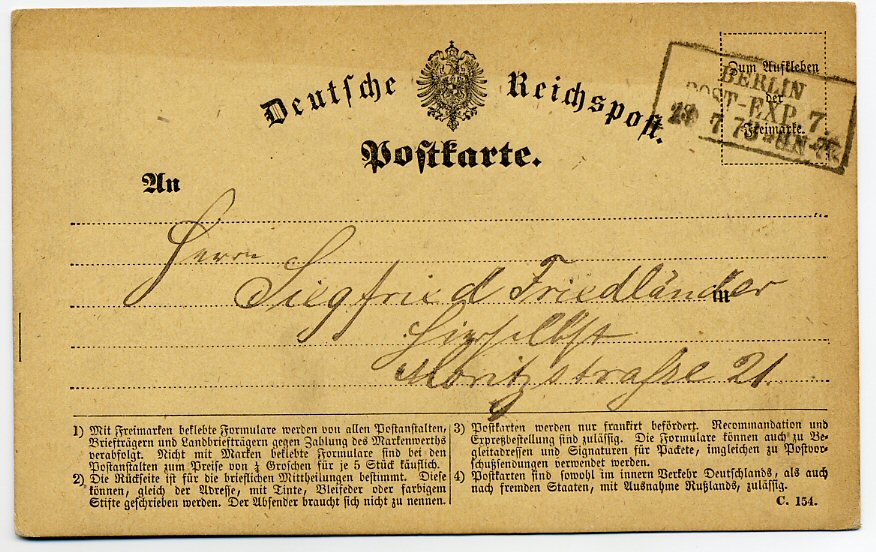 Deutsche Reichspost.
Postkarte.
Zum Aufkleben
der
Freimarke.
BERLIN
POST-EXP. 7.
7 73
An
Herrn
Siegfried Friedländer
in
Hierselbst
Moritzstraße 21.
1) Mit Freimarken beklebte Formulare werden von allen Postanstalten,
Briefträgern und Landbriefträgern gegen Zahlung des Markenwerths
verabfolgt. Nicht mit Marken beklebte Formulare sind bei den
Postanstalten zum Preise von ¼ Groschen für je 5 Stück käuflich.
2) Die Rückseite ist für die brieflichen Mittheilungen bestimmt. Diese
können, gleich der Adresse, mit Tinte, Bleifeder oder farbigem
Stifte geschrieben werden. Der Absender braucht sich nicht zu nennen.
3) Postkarten werden nur frankirt befördert. Recommandation und
Expreßbestellung sind zulässig. Die Formulare können auch zu Be-
gleitadressen und Signaturen für Packete, imgleichen zu Postvor-
schußsendungen verwendet werden.
4) Postkarten sind sowohl im innern Verkehr Deutschlands, als auch
nach fremden Staaten, mit Ausnahme Rußlands, zulässig.
C. 154.